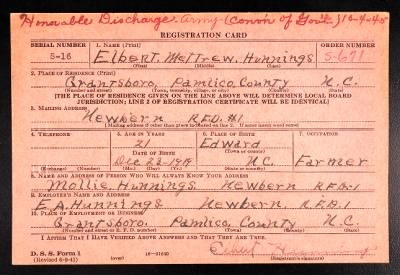 Honorable Discharge Army-(Convn of Gov't.) 10-4-45
REGISTRATION CARD
SERIAL NUMBER 1. NAME (Print) ORDER NUMBER
S-16 Elbert McTrew Hunnings S-671
(First) (Middle) (Last)
2. PLACE OF RESIDENCE (Print)
Grantsboro, Pamlico County N.C.
(Number and street) (Town, township, village, or city) (County) (State)
[THE PLACE OF RESIDENCE GIVEN ON THE LINE ABOVE WILL DETERMINE LOCAL BOARD
JURISDICTION; LINE 2 OF REGISTRATION CERTIFICATE WILL BE IDENTICAL]
3. MAILING ADDRESS
Newbern R.F.D. #1
[Mailing address if other than place indicated on line 2. If same insert word same]
4. TELEPHONE 5. AGE IN YEARS 6. PLACE OF BIRTH 7. OCCUPATION
21 Edward
DATE OF BIRTH (Town or county)
Dec 22 1919 N.C. Farmer
(Exchange) (Number) (Mo.) (Day) (Yr.) (State or country)
8. NAME AND ADDRESS OF PERSON WHO WILL ALWAYS KNOW YOUR ADDRESS
Mollie Hunnings Newbern RFD#1
9. EMPLOYER'S NAME AND ADDRESS
E.A. Hunnings Newbern, R.F.D.1
10. PLACE OF EMPLOYMENT OR BUSINESS
Grantsboro, Pamlico County N.C.
(Number and street or R. F. D. number) (Town) (County) (State)
I AFFIRM THAT I HAVE VERIFIED ABOVE ANSWERS AND THAT THEY ARE TRUE.
D. S. S. Form 1
(Revised 6-9-41) (over) 16—21630